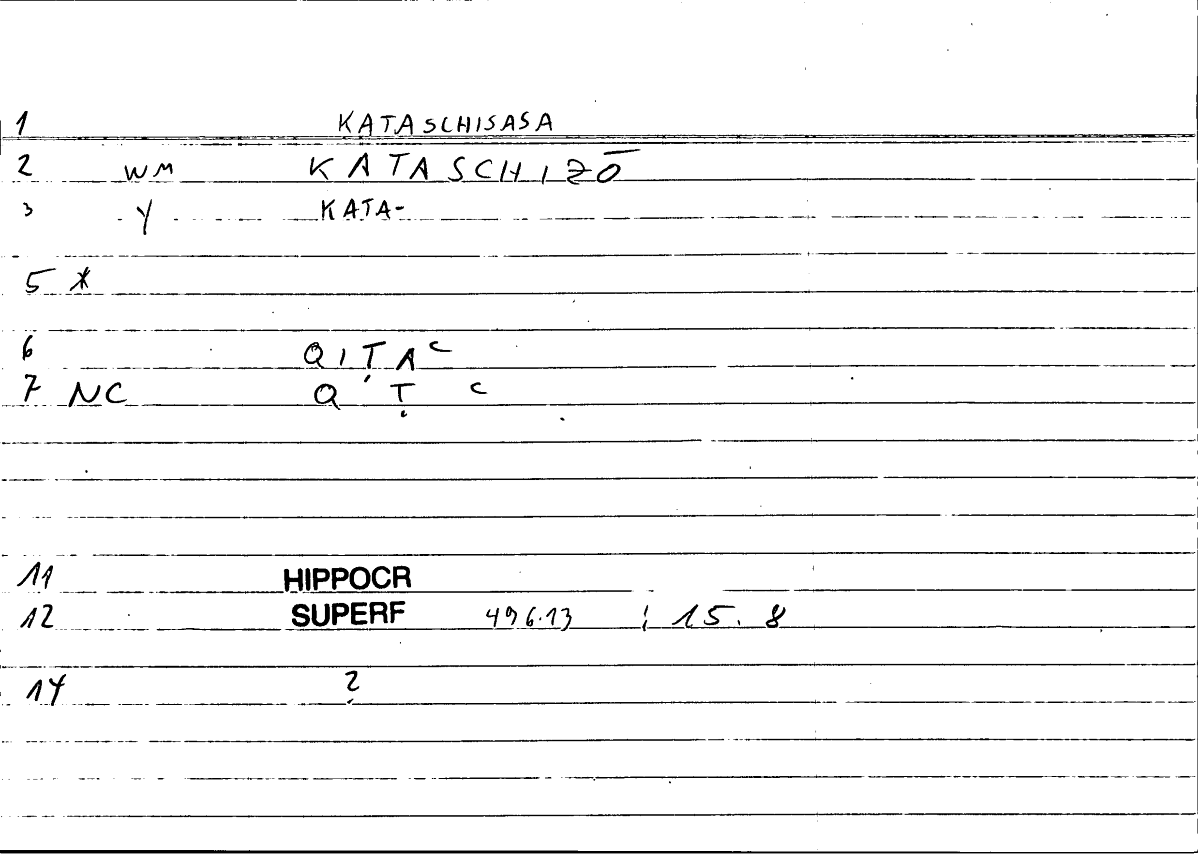 1 KATASCHISASA
2 WM KATASCHIZŌ
3 Y KATA-
5 *
6 QIṬAʿ
7 NC QṬʿ
11 HIPPOCR
12 SUPERF 496.13 ; 15.8
14 ?